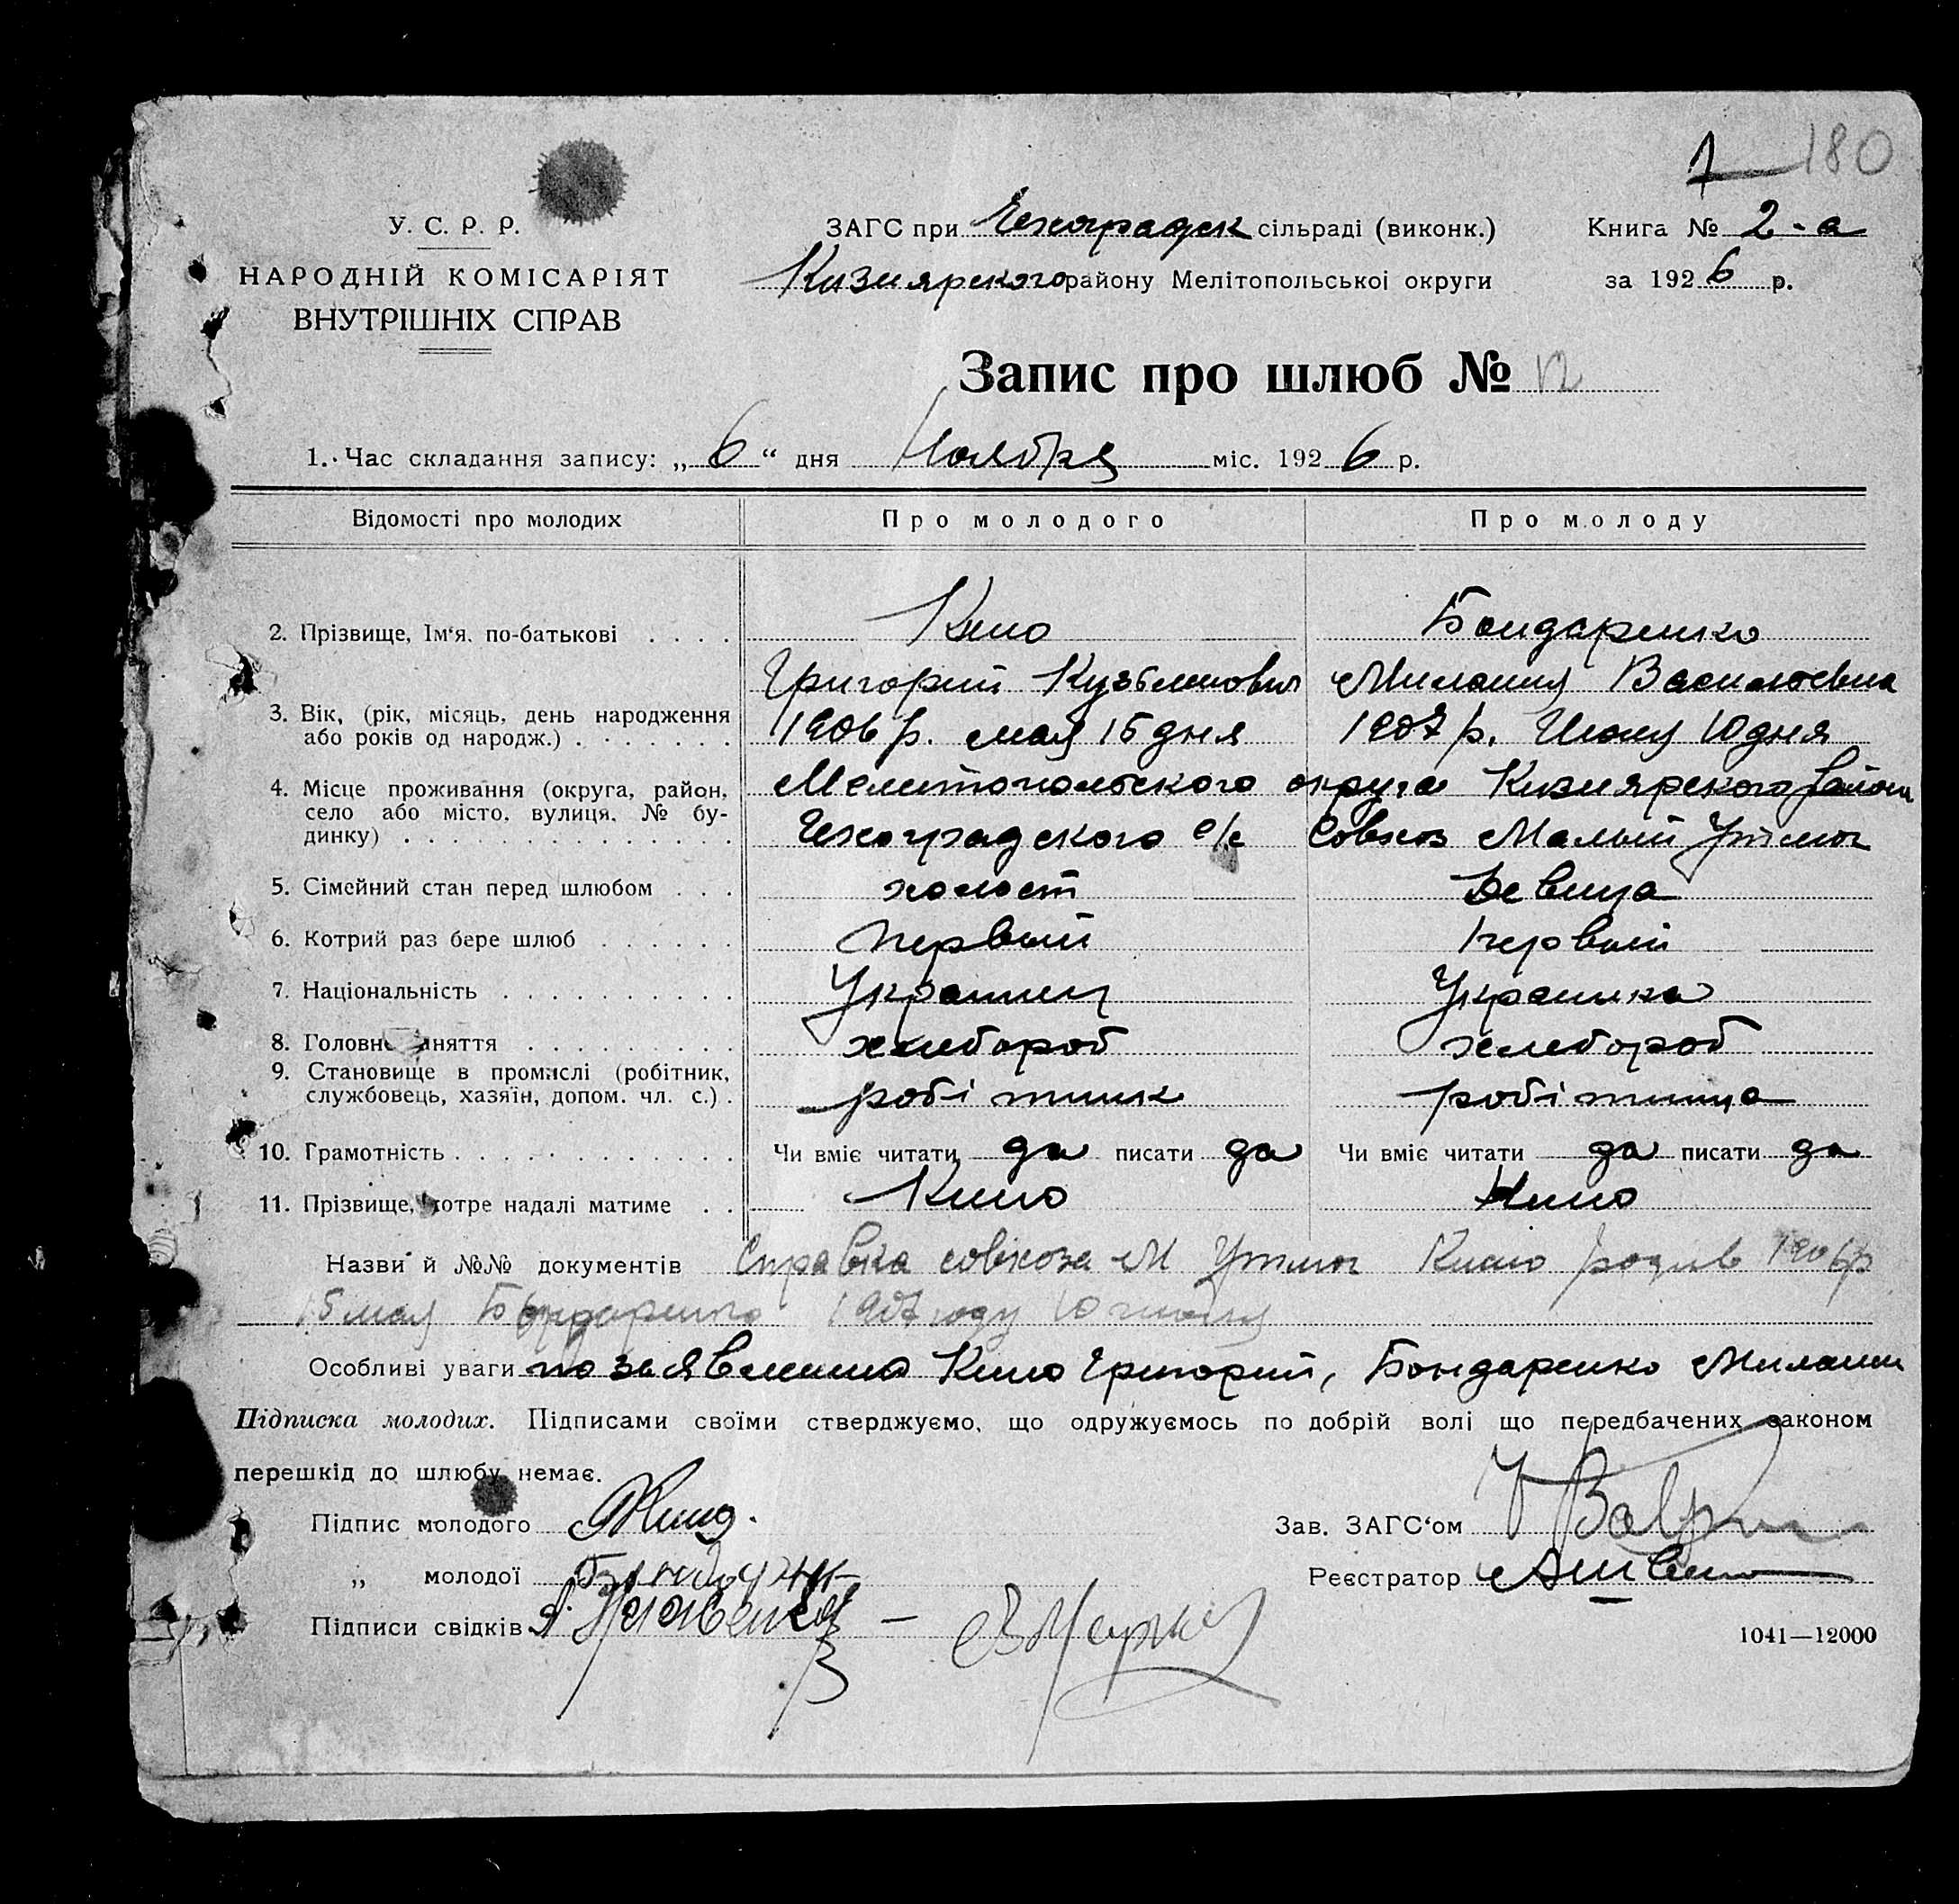 1 — 180
У. С. Р. Р.
НАРОДНІЙ КОМІСАРІЯТ
ВНУТРІШНІХ СПРАВ
ЗАГС при Чехоградск сільраді (виконк.)
Кизиярского району Мелітопольської округи
Книга № 2-а
за 1926 р.
Запис про шлюб № 12
1. Час складання запису: „6“ дня Ноября міс. 1926 р.
Відомості про молодих Про молодого Про молоду
2. Прізвище, Ім‘я, по-батькові . . . . Кино Бондаренко
Григорий Кузьмович Милания Василевна
3. Вік, (рік, місяць, день народження або років од народж.) . . . . . . . 1906 р. мая 15 дня 1907 р. Июня 10 дня
4. Місце проживання (округа, район, село або місто, вулиця, № будинку) . . . . . . . . . . . . . . Мелитопольского округа Кизиярского района
Чехоградского с/с Совхоз Малый Утлюг
5. Сімейний стан перед шлюбом . . . холост Девица
6. Котрий раз бере шлюб . . . . . . Первый Первый
7. Національність . . . . . . . . . . Украинец Украинка
8. Головне заняття . . . . . . . . . хлебороб хлебороб
9. Становище в промислі (робітник, службовець, хазяїн, допом. чл. с.) . робітник робітница
10. Грамотність . . . . . . . . . . . . Чи вміє читати да писати да Чи вміє читати да писати да
11. Прізвище, котре надалі матиме . . Кино Кино
Назви й №№ документів Справка совхоза М Утлюг Кино родив 1906 р
15 мая Бондаренко 1907 году 10 июня
Особливі уваги по заявлению Кино Григорий, Бондаренко Милании
Підписка молодих. Підписами своїми стверджуємо, що одружуємось по добрій волі що передбачених законом
перешкід до шлюбу немає.
Підпис молодого Кино.
Зав. ЗАГС‘ом
„ молодої Бондарен
Реєстратор
Підписи свідків
1041—12000